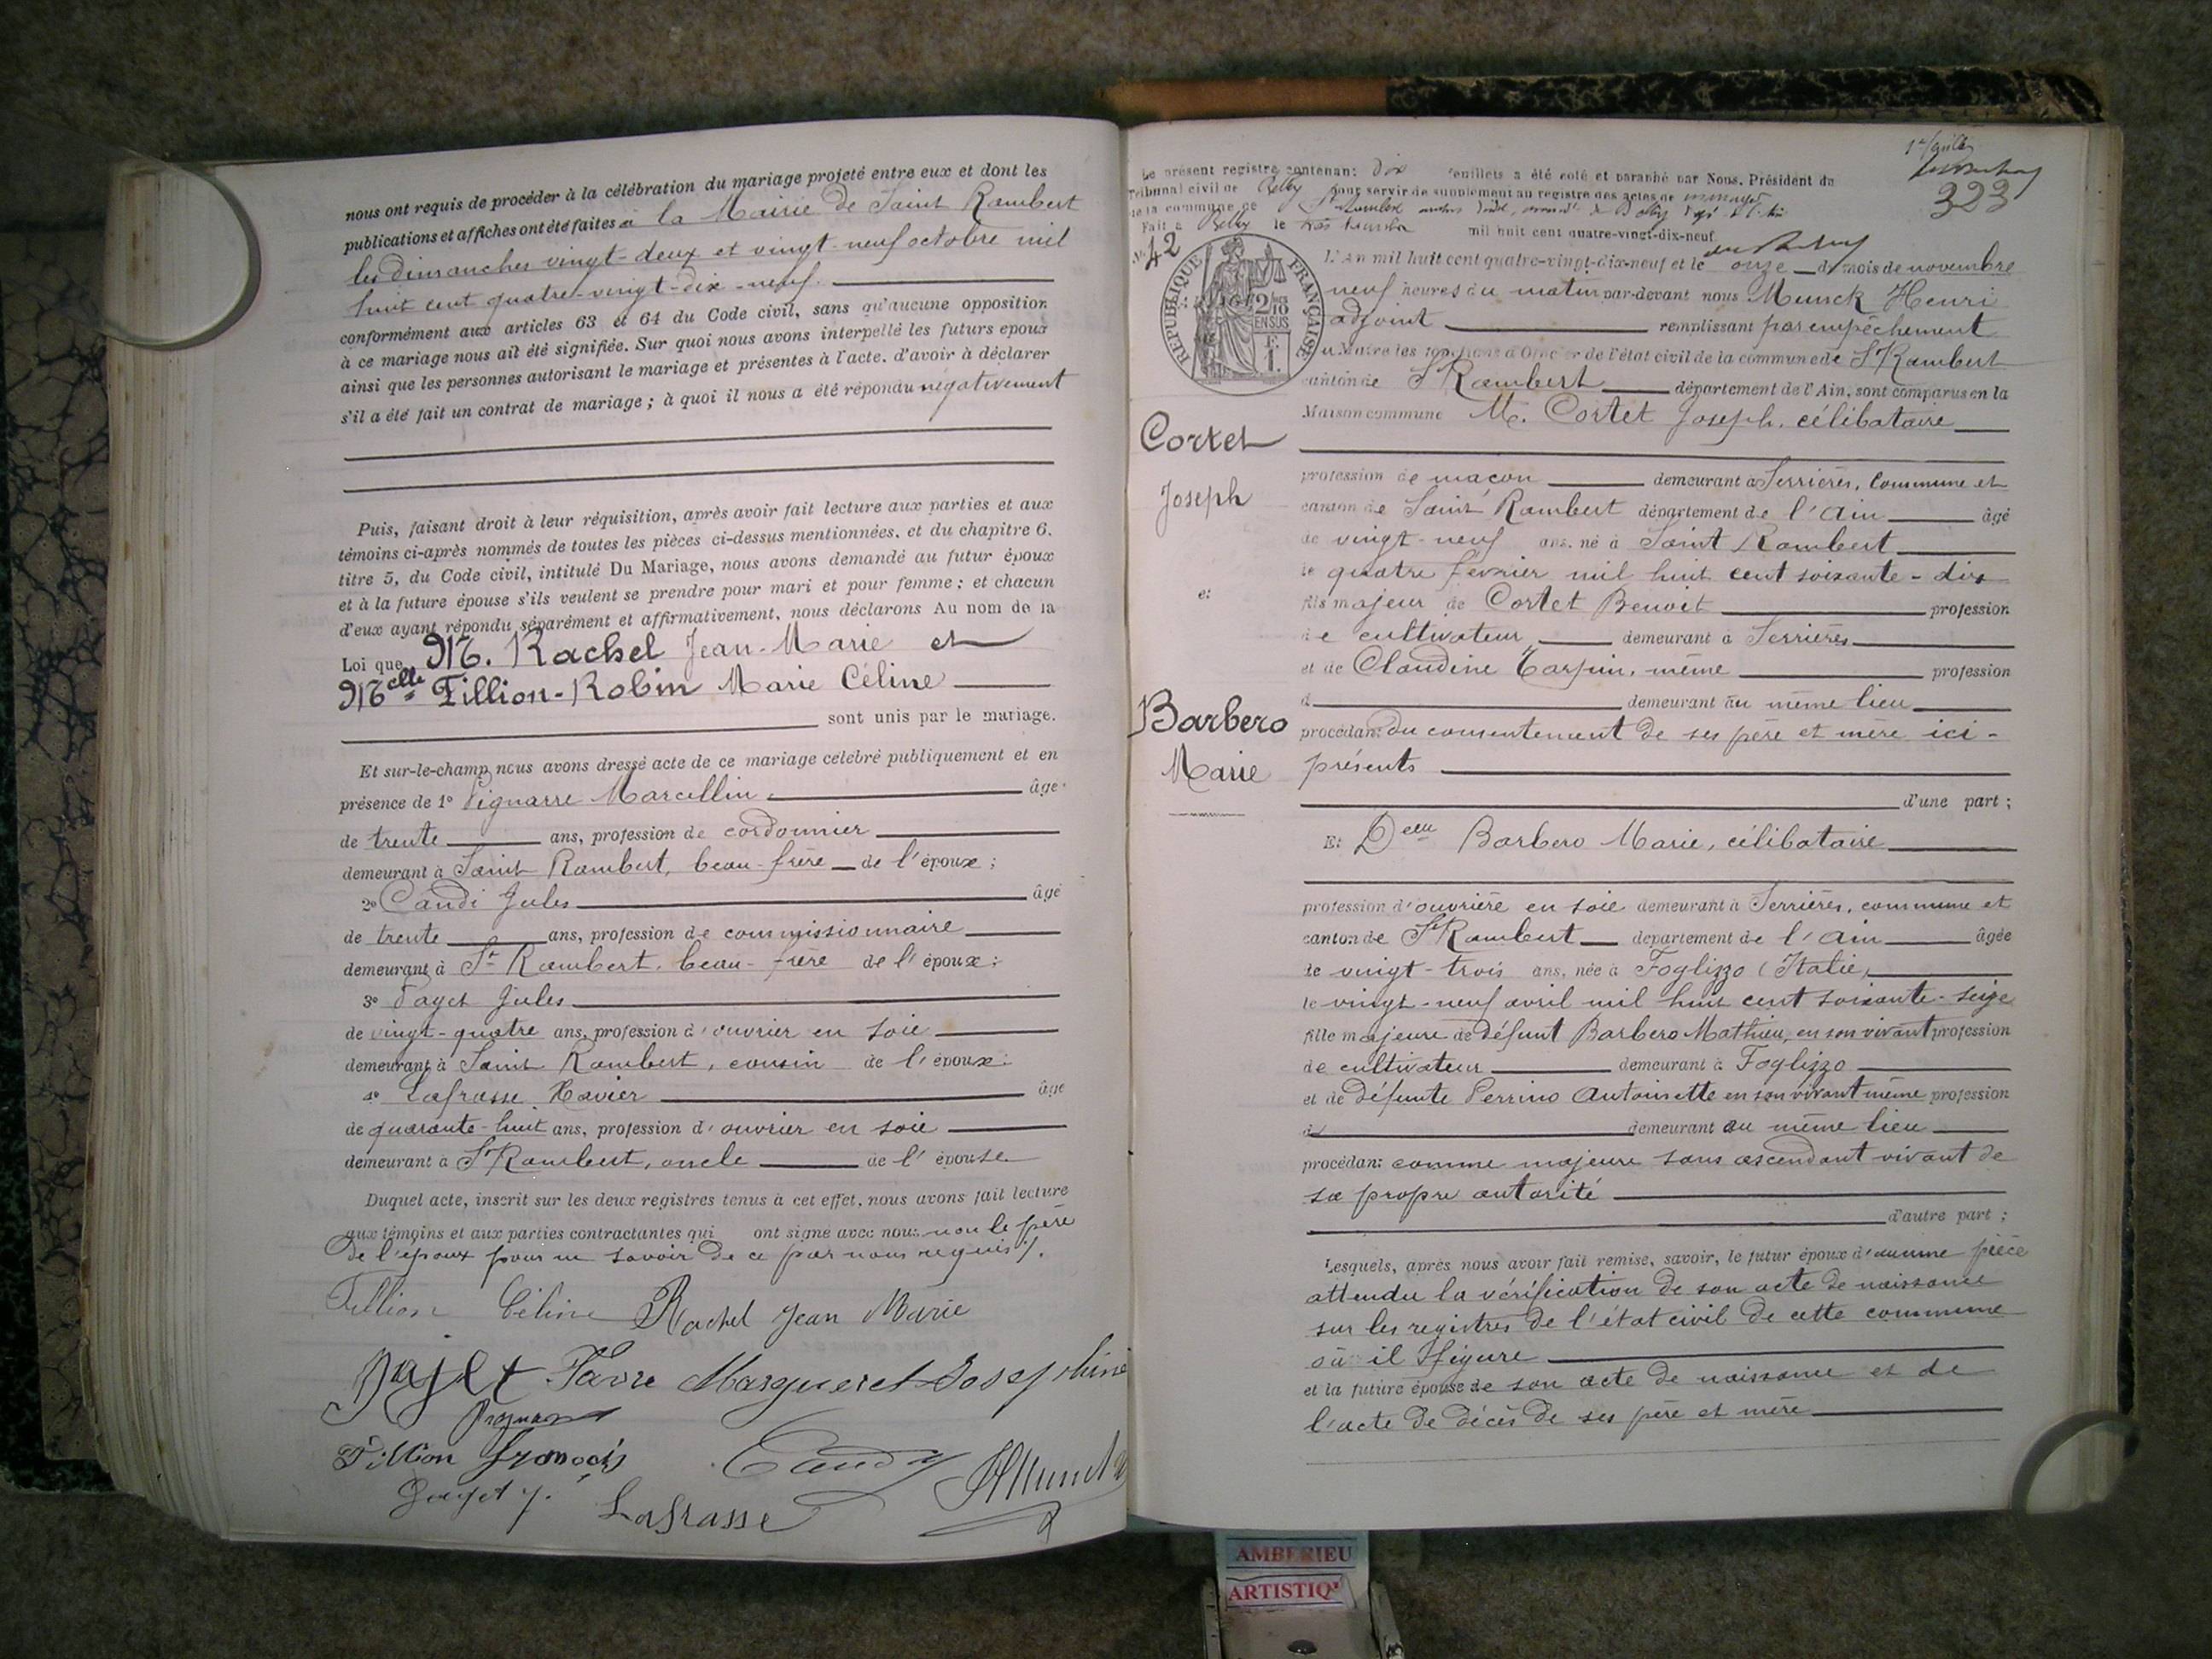 nous ont requis de procéder à la célébration du mariage projeté entre eux et dont les
publications et affiches ont été faites à la Mairie de Saint Rambert
les dimanches vingt-deux et vingt-neuf octobre mil
huit cent quatre-vingt-dix-neuf.
conformément aux articles 63 et 64 du Code civil, sans qu'aucune opposition
à ce mariage nous ait été signifiée. Sur quoi nous avons interpellé les futurs epoux
ainsi que les personnes autorisant le mariage et présentes à l'acte, d'avoir à déclarer
s'il a été fait un contrat de mariage ; à quoi il nous a été répondu négativement
Puis, faisant droit à leur réquisition, après avoir fait lecture aux parties et aux
témoins ci-après nommés de toutes les pièces ci-dessus mentionnées, et du chapitre 6,
titre 5, du Code civil, intitulé Du Mariage, nous avons demandé au futur époux
et à la future épouse s'ils veulent se prendre pour mari et pour femme ; et chacun
d'eux ayant répondu séparément et affirmativement, nous déclarons Au nom de la
Loi que M. Rachel Jean-Marie et
Melle Fillion-Robin Marie Céline
sont unis par le mariage.
Et sur-le-champ nous avons dressé acte de ce mariage célébré publiquement et en
présence de 1° Vignarre Marcellin, âgé
de trente ans, profession de cordonnier
demeurant à Saint Rambert, beau-frère de l'époux ;
2° Candi Jules âgé
de trente ans, profession de commissionnaire
demeurant à St Rambert, beau-frère de l'époux ;
3° Payet Jules
de vingt-quatre ans, profession d'ouvrier en soie
demeurant à Saint Rambert, cousin de l'époux ;
4° Lafrasse Xavier âgé
de quarante-huit ans, profession d'ouvrier en soie
demeurant à St Rambert, oncle de l'épouse
Duquel acte, inscrit sur les deux registres tenus à cet effet, nous avons fait lecture
aux témoins et aux parties contractantes qui ont signé avec nous non le père
de l'époux pour ne savoir de ce par nous requis ./.
Fillion Céline Rachel Jean Marie
Pajet Favre Margueret Josephine
Fillion François Candy
Lafrasse
1er
323
Le présent registre contenant dix feuillets a été coté et paraphé par Nous, Président du
Tribunal civil de Belley pour servir de supplément au registre des actes de mariages
de la commune de St Rambert
Fait à Belley le trois novembre mil huit cent quatre-vingt-dix-neuf
No 42
RÉPUBLIQUE FRANÇAISE
2/10 EN SUS
F. 1.
L'An mil huit cent quatre-vingt-dix-neuf et le onze du mois de novembre
neuf heures du matin par-devant nous Munck Henri
adjoint remplissant par empêchement
du Maire les fonctions d'Officier de l'état civil de la commune de St Rambert
canton de St Rambert département de l'Ain, sont comparus en la
Maison commune M. Cortet Joseph, célibataire
Cortet
Joseph
et
Barbero
Marie
profession de maçon demeurant à Serrières, commune et
canton de Saint Rambert département de l'Ain âgé
de vingt-neuf ans, né à Saint Rambert
le quatre février mil huit cent soixante-dix
fils majeur de Cortet Benoit profession
de cultivateur demeurant à Serrières
et de Claudine Carpin, même profession
d demeurant au même lieu
procédant du consentement de ses père et mère ici-
présents
d'une part ;
Et Delle Barbero Marie, célibataire
profession d'ouvrière en soie demeurant à Serrières, commune et
canton de St Rambert département de l'Ain âgée
de vingt-trois ans, née à Foglizzo (Italie)
le vingt-neuf avril mil huit cent soixante-seize
fille majeure de défunt Barbero Mathieu, en son vivant profession
de cultivateur demeurant à Foglizzo
et de défunte Perrino Antoinette en son vivant même profession
d demeurant au même lieu
procédant comme majeure sans ascendant vivant de
sa propre autorité
d'autre part ;
Lesquels, après nous avoir fait remise, savoir, le futur époux d'aucune pièce
attendu la vérification de son acte de naissance
sur les registres de l'état civil de cette commune
où il figure
et la future épouse de son acte de naissance et de
l'acte de décès de ses père et mère
AMBERIEU
ARTISTIQ